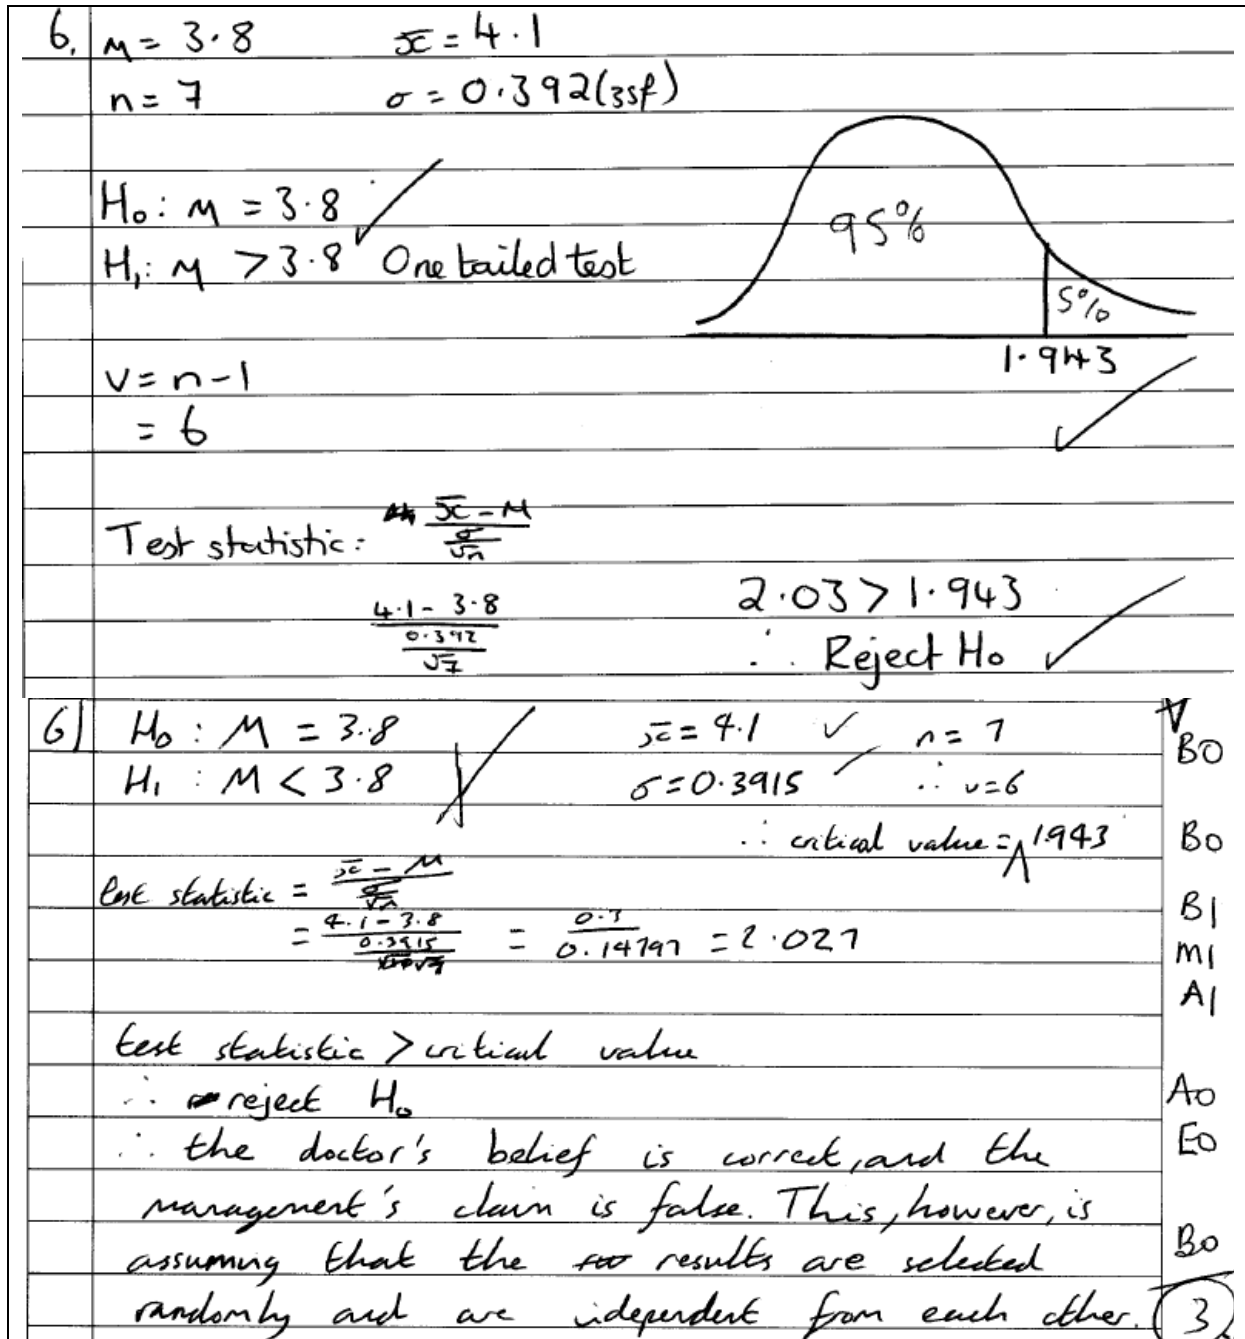 6. μ = 3.8 x̄ = 4.1
n = 7 σ = 0.392 (3sf)
H₀: μ = 3.8 ✓
95%
H₁: μ > 3.8 One tailed test
5%
1.943
v = n - 1
= 6
✓
Test statistic: (x̄ - μ)/(σ/√n)
(4.1 - 3.8)/(0.392/√7)
2.03 > 1.943
∴ Reject H₀ ✓
6) H₀ : μ = 3.8 x̄ = 4.1 ✓ n = 7
B0
H₁ : μ < 3.8 σ = 0.3915 ✓ ∴ v = 6
∴ critical value = 1.943 B0
test statistic = (x̄ - μ)/(σ/√n)
B1
= (4.1 - 3.8)/(0.3915/√7) = 0.3/0.14797 = 2.027
M1
A1
test statistic > critical value
∴ reject H₀ A0
∴ the doctor's belief is correct, and the E0
management's claim is false. This, however, is
assuming that the results are selected B0
randomly and are independent from each other. 3